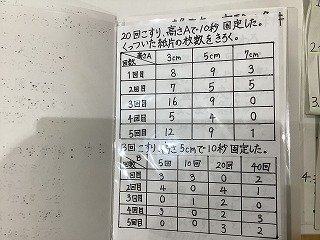 20回こすり、高さAで10秒 固定した。
くっついた紙片の枚数をきろく。
回数 高さA 3cm 5cm 7cm
1回目 8 9 3
2回目 7 5 5
3回目 16 9 0
4回目 5 4 0
5回目 12 9 1
回こすり、高さ 5cmで10秒 固定した。
回数 B 5回 10回 20回 40回
1回目 3 3 0 2
2回目 4 0 4 1
3回目 0 1 2 0
4回目 3 0 2 3
5回目 0 0 3 2